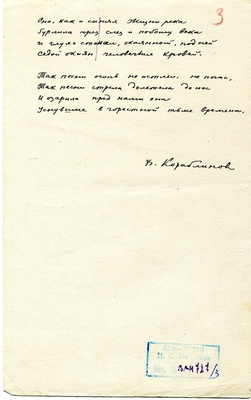 3
Оно, как и синяя Жизни река
Бурлила через слез и победы века
и глухо стонал, окаянной, под ней
Седой океан человечьих кровей.
Так песни огонь не истлел, не погас,
Так песни стрела долетела до нас
И озарила пред нами она
Уснувшие в горестной тьме времена.
Вл. Кораблинов
ВЛМ 727/3